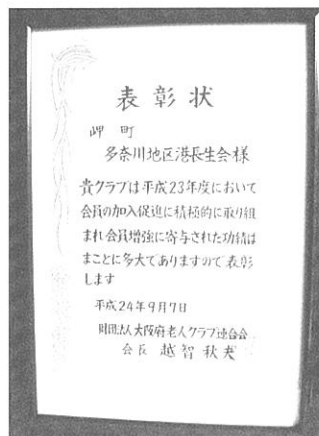 表彰状
岬町
多奈川地区港長生会様
貴クラブは平成23年度において
会員の加入促進に積極的に取り組
まれ会員増強に寄与された功績は
まことに多大でありますので表彰
します
平成24年9月7日
財団法人大阪府老人クラブ連合会
会長 越智秋夫